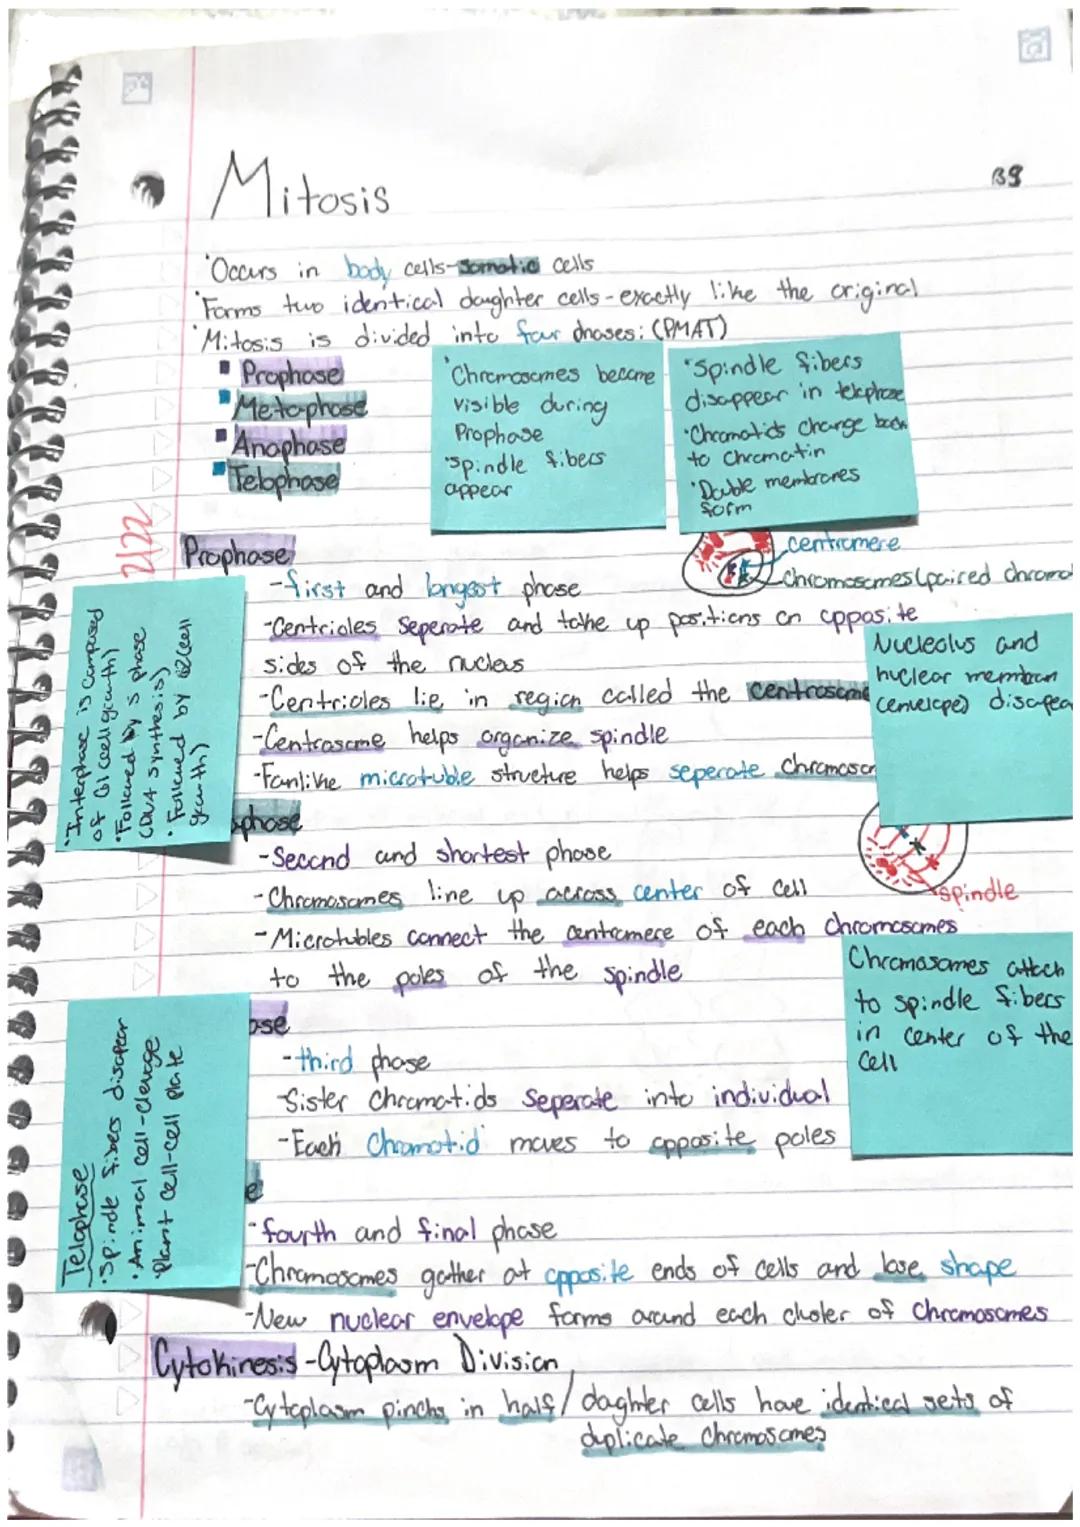 Mitosis
39
•Occurs in body cells-somatic cells
•Forms two identical daughter cells-exactly like the original
•Mitosis is divided into four phases: (PMAT)
Prophase
Metaphase
Anaphase
Telophase
•Chromosomes become
visible during
Prophase
•Spindle fibers
appear
•Spindle fibers
disappear in telophase
•Chromatids change back
to chromatin
•Double membranes
form
2/22
Prophase
centromere
Chromosomes (paired chroma
-first and longest phase
-Centrioles Seperate and take up positions on opposite
sides of the nucleus
-Centrioles lie in region called the centrosome
-Centrosome helps organize spindle
-Fanlike microtuble structure helps seperate chromosom
Nucleolus and
nuclear membran
(envelope) disapea
•Interphase is composed
of G1 (cell growth)
•Followed by S phase
(DNA synthesis)
•Followed by G2 (cell
growth)
aphase
-Second and shortest phase
-Chromosomes line up across center of cell
-Microtubles connect the centromere of each chromosomes
to the poles of the spindle
spindle
Chromosomes attach
to spindle fibers
in center of the
cell
ase
-third phase
-Sister chromatids seperate into individual
-Each Chromatid moves to opposite poles
Telophase
•Spindle fibers disapear
•Animal cell-cleavge
•Plant cell-cell plate
e
-fourth and final phase
-Chromosomes gather at opposite ends of cells and lose shape
-New nuclear envelope forms around each cluster of Chromosomes
Cytokinesis-Cytoplasm Division
-Cytoplasm pinchs in half/daghter cells have identical sets of
duplicate chromosomes